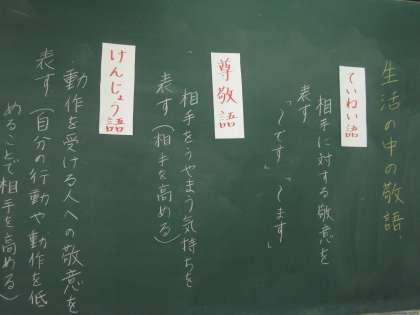 生活の中の敬語
ていねい語
相手に対する敬意を
表す
「〜です」「〜ます」
尊敬語
・相手をうやまう気持ちを
表す（相手を高める）
けんじょう語
・動作を受ける人への敬意を
表す（自分の行動や動作を低
めることで相手を高める）